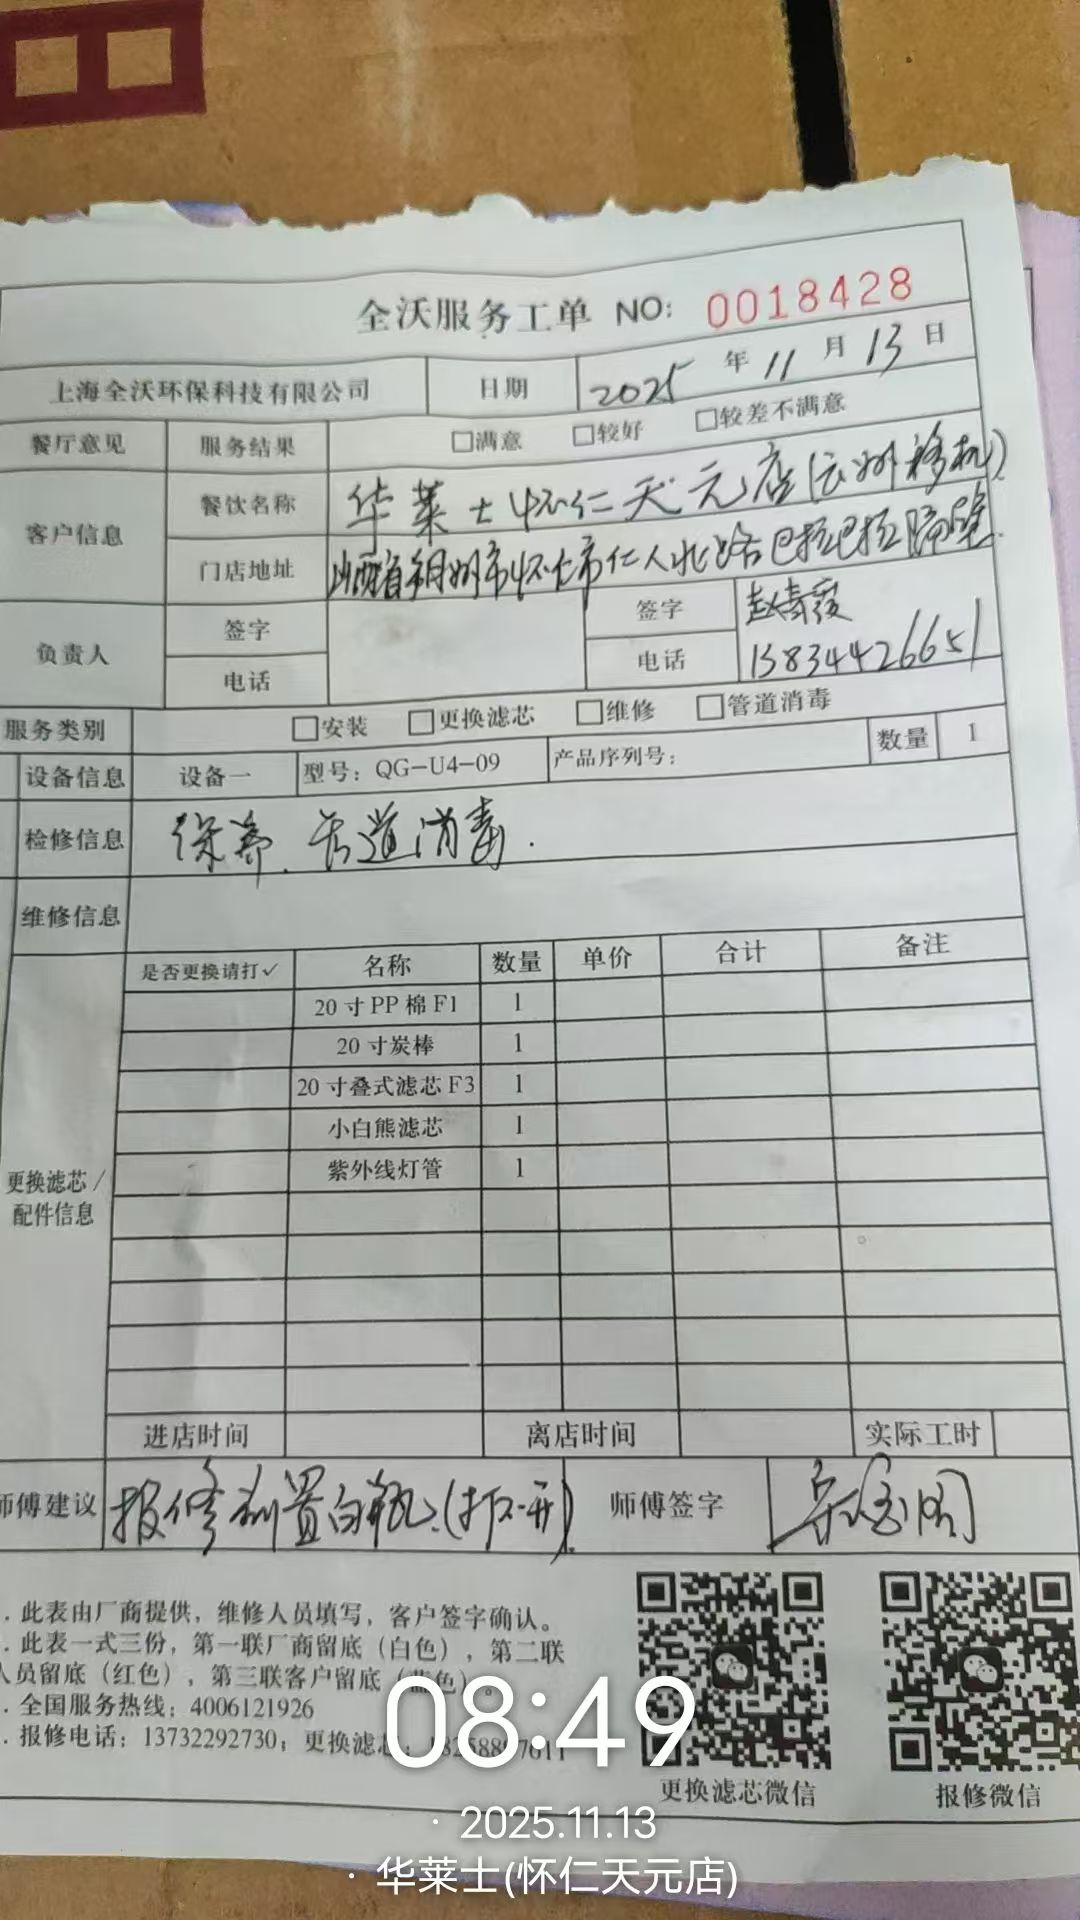 全沃服务工单 NO: 0018428
上海全沃环保科技有限公司 日期 2025年11月13日
餐厅意见 服务结果 □满意 □较好 □较差不满意
客户信息 餐饮名称 华莱士怀仁天元店(云州移机)
门店地址 山西省朔州市怀仁市仁人北路巴拉巴拉隔壁
负责人 签字 签字 赵青霞
电话 电话 15834426651
服务类别 □安装 □更换滤芯 □维修 □管道消毒
设备信息 设备一 型号：QG-U4-09 产品序列号： 数量 1
检修信息 保养.管道消毒.
维修信息
更换滤芯/配件信息 是否更换请打✓ 名称 数量 单价 合计 备注
20寸PP棉F1 1
20寸炭棒 1
20寸叠式滤芯F3 1
小白熊滤芯 1
紫外线灯管 1
进店时间 离店时间 实际工时
师傅建议 报修前置白瓶(打不开). 师傅签字
. 此表由厂商提供，维修人员填写，客户签字确认。
. 此表一式三份，第一联厂商留底（白色），第二联
人员留底（红色），第三联客户留底（蓝色）。
. 全国服务热线：4006121926
. 报修电话：13732292730；更换滤芯：
更换滤芯微信 报修微信
08:49
· 2025.11.13
· 华莱士(怀仁天元店)